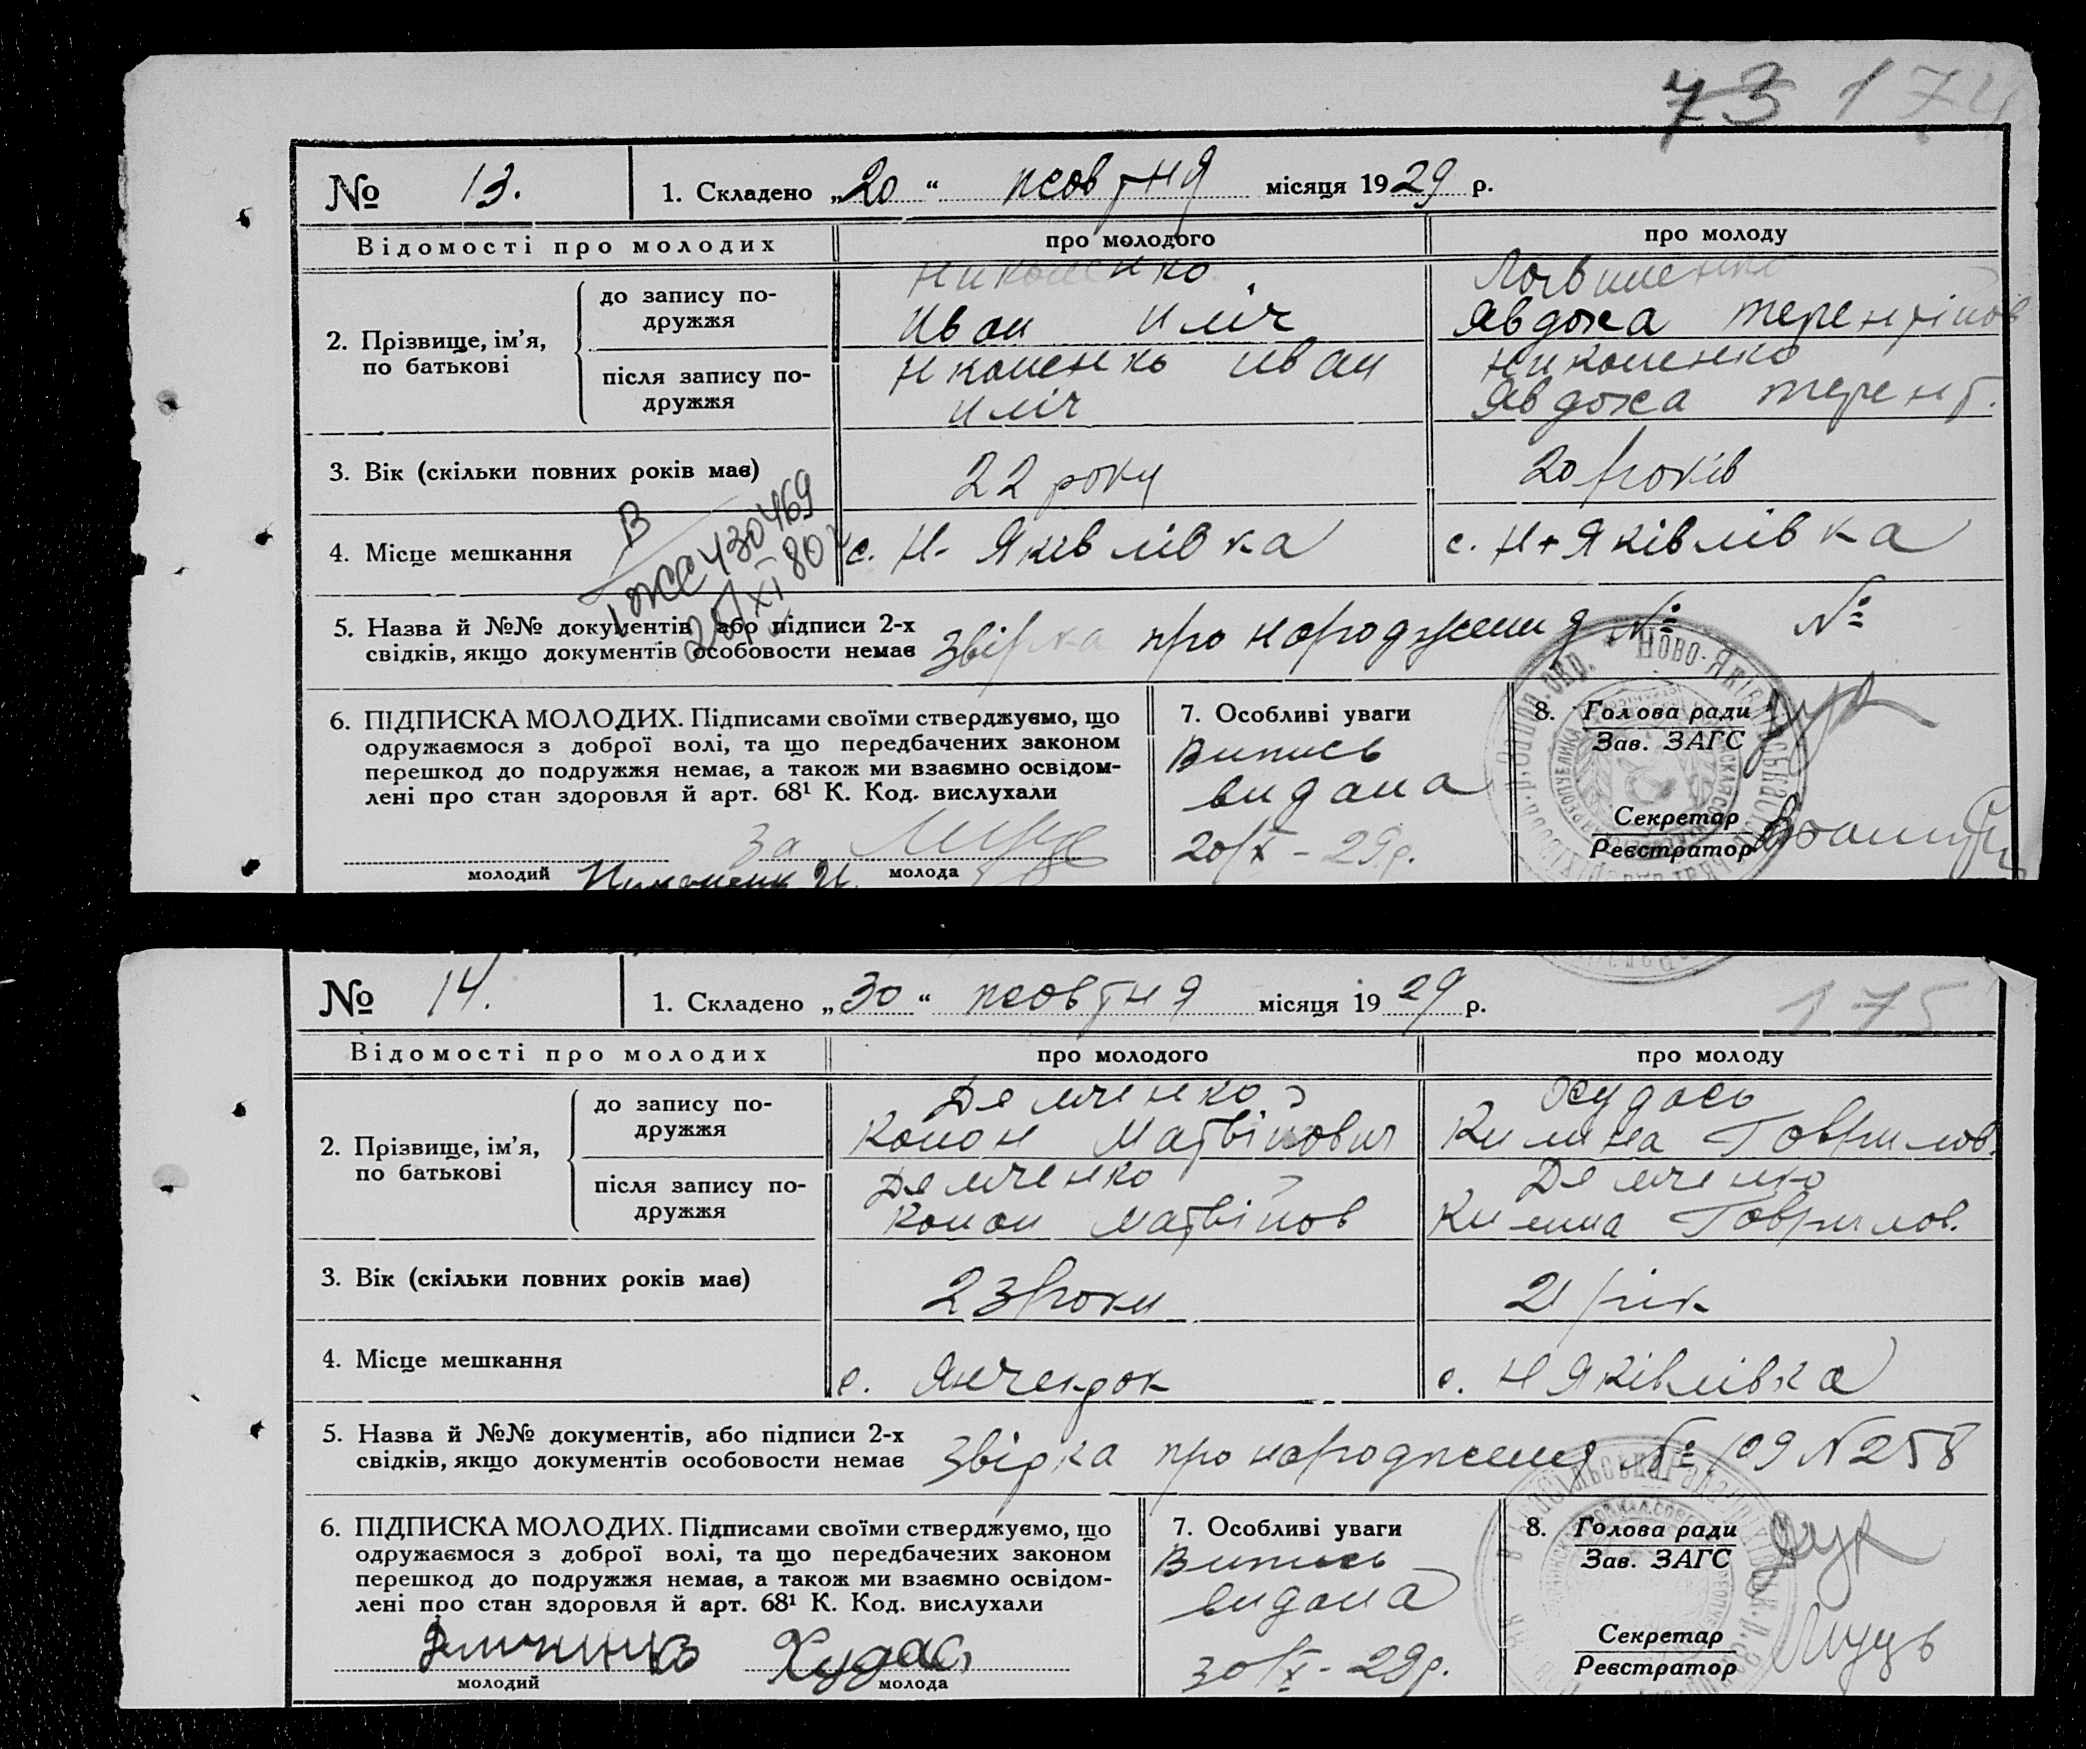 73 174
№ 13. 1. Складено „20“ жовтня місяця 1929 р.
Відомості про молодих про молодого про молоду
2. Прізвище, ім’я, по батькові
до запису подружжя
Никоненко
Иван Иліч
Явдоха Терентіиов
після запису подружжя
Никоненко Иван
Иліч
Никоненко
Явдоха Терент.
3. Вік (скільки повних років має) 22 роки 20 років
4. Місце мешкання с. Н-Яківлівка с. Н-Яківлівка
В
430469
5. Назва й №№ документів або підписи 2-х
свідків, якщо документів особовости немає
Звірка про народження № №
6. ПІДПИСКА МОЛОДИХ. Підписами своїми стверджуємо, що
одружаємося з доброї волі, та що передбачених законом
перешкод до подружжя немає, а також ми взаємно освідом-
лені про стан здоров‘я й арт. 68¹ К. Код. вислухали
за
молодий молода
7. Особливі уваги
Випись
видана
20/X - 29р.
8. Голова ради
Зав. ЗАГС
Секретар
Реєстратор
№ 14. 1. Складено „30“ жовтня місяця 1929 р.
175
Відомості про молодих про молодого про молоду
2. Прізвище, ім’я, по батькові
до запису подружжя
Демченко
Конон Матвійович
Худась
Килина Гаврилов.
після запису подружжя
Демченко
Конон Матвійов
Демченко
Килина Гаврилов.
3. Вік (скільки повних років має) 23 роки 21 рік
4. Місце мешкання с. Янчекрак с. Н Яківлівка
5. Назва й №№ документів, або підписи 2-х
свідків, якщо документів особовости немає
Звірка про народження № 109 № 258
6. ПІДПИСКА МОЛОДИХ. Підписами своїми стверджуємо, що
одружаємося з доброї волі, та що передбачених законом
перешкод до подружжя немає, а також ми взаємно освідом-
лені про стан здоров‘я й арт. 68¹ К. Код. вислухали
Худась
молодий молода
7. Особливі уваги
Випись
видана
30/X - 29р.
8. Голова ради
Зав. ЗАГС
Секретар
Реєстратор